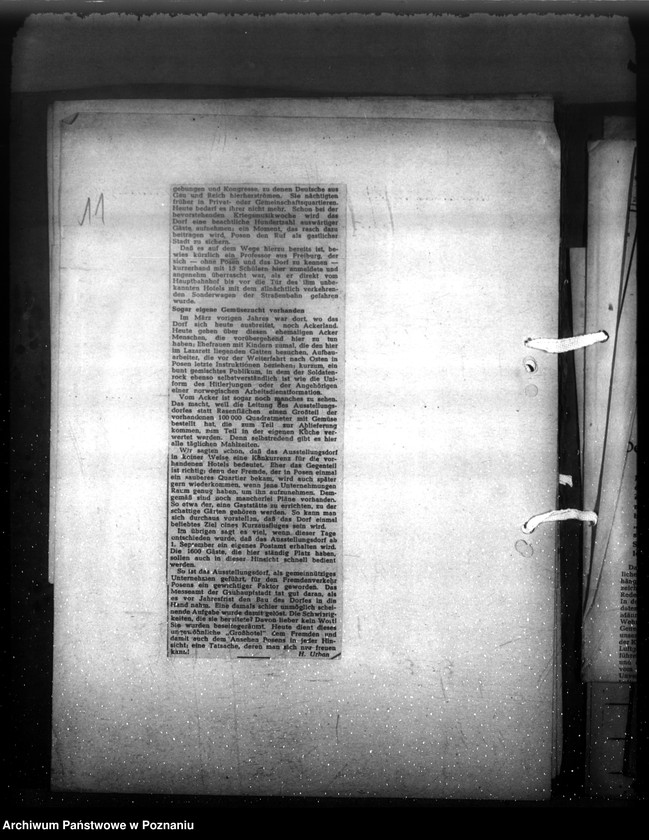 11
gebungen und Kongresse, zu denen Deutsche aus
Gau und Reich hierherströmen. Sie nächtigten
früher in Privat- oder Gemeinschaftsquartieren.
Heute bedarf es ihrer nicht mehr. Schon bei der
bevorstehenden Kriegsmusikwoche wird das
Dorf eine beachtliche Hundertzahl auswärtiger
Gäste aufnehmen: ein Moment, das rasch dazu
beitragen wird, Posen den Ruf als gastlicher
Stadt zu sichern.
Daß es auf dem Wege hierzu bereits ist, be-
wies kürzlich ein Professor aus Freiburg, der
sich — ohne Posen und das Dorf zu kennen —
kurzerhand mit 15 Schülern hier anmeldete und
angenehm überrascht war, als er direkt vom
Hauptbahnhof bis vor die Tür des ihm unbe-
kannten Hotels mit dem allnächtlich verkehren-
den Sonderwagen der Straßenbahn gefahren
wurde.
Sogar eigene Gemüsezucht vorhanden
Im März vorigen Jahres war dort, wo das
Dorf sich heute ausbreitet, noch Ackerland.
Heute gehen über diesen ehemaligen Acker
Menschen, die vorübergehend hier zu tun
haben: Ehefrauen mit Kindern zumal, die den hier
im Lazarett liegenden Gatten besuchen, Aufbau-
arbeiter, die vor der Weiterfahrt nach Osten in
Posen letzte Instruktionen beziehen; kurzum, ein
bunt gemischtes Publikum, in dem der Soldaten-
rock ebenso selbstverständlich ist wie die Uni-
form des Hitlerjungen oder der Angehörigen
einer norwegischen Arbeitsdienstformation.
Vom Acker ist sogar noch manches zu sehen.
Das macht, weil die Leitung des Ausstellungs-
dorfes statt Rasenflächen einen Großteil der
vorhandenen 100 000 Quadratmeter mit Gemüse
bestellt hat, die zum Teil zur Ablieferung
kommen, zum Teil in der eigenen Küche ver-
wertet werden. Denn selbstredend gibt es hier
alle täglichen Mahlzeiten.
Wir sagten schon, daß das Ausstellungsdorf
in keiner Weise eine Konkurrenz für die vor-
handenen Hotels bedeutet. Eher das Gegenteil
ist richtig: denn der Fremde, der in Posen einmal
ein sauberes Quartier bekam, wird auch später
gern wiederkommen, wenn jene Unternehmungen
Raum genug haben, um ihn aufzunehmen. Dem-
gemäß sind noch mancherlei Pläne vorhanden.
So etwa der, eine Gaststätte zu errichten, zu der
schattige Gärten gehören werden. So kann man
sich durchaus vorstellen, daß das Dorf einmal
beliebtes Ziel eines Kurzausfluges sein wird.
Im übrigen sagt es viel, wenn dieser Tage
entschieden wurde, daß das Ausstellungsdorf ab
1. September ein eigenes Postamt erhalten wird.
Die 1600 Gäste, die hier ständig Platz haben,
sollen auch in dieser Hinsicht schnell bedient
werden.
So ist das Ausstellungsdorf, als gemeinnütziges
Unternehmen geführt, für den Fremdenverkehr
Posens ein gewichtiger Faktor geworden. Das
Messeamt der Gauhauptstadt ist gut daran, als
es vor Jahresfrist den Bau des Dorfes in die
Hand nahm. Eine damals schier unmöglich schei-
nende Aufgabe wurde damit gelöst. Die Schwierig-
keiten, die sie bereitete? Davon lieber kein Wort!
Sie wurden beiseitegeräumt. Heute dient dieses
ungewöhnliche „Großhotel“ dem Fremden und
damit auch dem Ansehen Posens in jeder Hin-
sicht; eine Tatsache, deren man sich nur freuen
kann! H. Urban
Archiwum Państwowe w Poznaniu